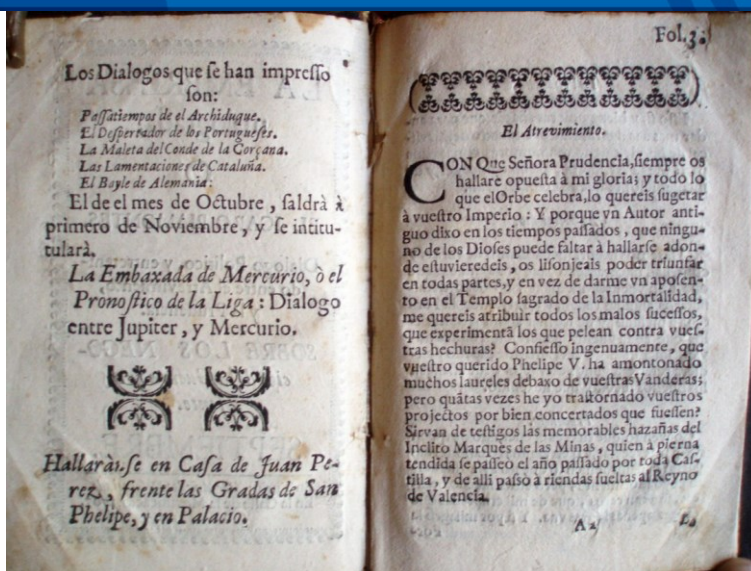 Los Dialogos que ſe han impreſſo
ſon:
Paſſatiempos de el Archiduque.
El Deſpertador de los Portugueſes.
La Maleta del Conde de la Corçana.
Las Lamentaciones de Cataluña.
El Bayle de Alemania:
El de el mes de Octubre, ſaldrà à
primero de Noviembre, y ſe intitu-
tularà.
La Embaxada de Mercurio, ò el
Pronoſtico de la Liga: Dialogo
entre Jupiter, y Mercurio.
Hallaràſe en Caſa de Juan Pe-
rez, frente las Gradas de San
Phelipe, y en Palacio.
Fol.3.
El Atrevimiento.
CON Que Señora Prudencia, ſiempre os
hallarè opueſta à mi gloria; y todo lo
que el Orbe celebra, lo quereis ſugetar
à vueſtro Imperio: Y porque vn Autor anti-
guo dixo en los tiempos paſſados, que ningu-
no de los Dioſes puede faltar à hallarſe adon-
de eſtuvieredeis, os liſonjeais poder triunfar
en todas partes, y en vez de darme vn apoſen-
to en el Templo ſagrado de la Inmortalidad,
me quereis atribuir todos los malos ſuceſſos,
que experimentã los que pelean contra vueſ-
tras hechuras? Confieſſo ingenuamente, que
vueſtro querido Phelipe V. ha amontonado
muchos laureles debaxo de vueſtras Vanderas;
pero quãtas vezes he yo traſtornado vueſtros
projectos por bien concertados que fueſſen?
Sirvan de teſtigos las memorables hazañas del
Inclito Marquès de las Minas, quien à pierna
tendida ſe paſſeò el año paſſado por toda Caſ-
tilla, y de alli paſsò à riendas ſueltas al Reyno
de Valencia.
A2